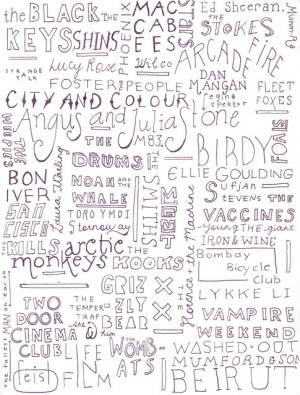 the BLACK
KEYS
the
SHINS
PHOENIX
MAC
CAB
EES
stars
Ed Sheeran.
the
STROKES
ARCADE
FIRE
Lucy Rose
Wilco
DAN
MANGAN
regina
spektor
FLEET
FOXES
FOSTER the PEOPLE
CITY AND COLOUR
Angus and Julia Stone
THE
WEEPIES
THE
DRUMS
M83.
BIRDY
FOALS
ELLIE GOULDING
BON
IVER
Laura Marling
NOAH AND THE
WHALE
THE
SMITHS
Sufjan
STEVENS
THE
VACCINES
SAN
CISCO
TORO Y MOI
Stornoway
young THE giant
IRON & WINE
THE
KILLS
arctic
monkeys
THE
KOOKS
Florence + the Machine
Bombay
Bicycle
Club
the tallest MAN on earth
GRIZ
ZLY
BEAR
THE
XX
LYKKE LI
TWO
DOOR
CINEMA
CLUB
THE
TEMPER
TRAP
VAMPIRE
WEEKEND
LIFE
IN
FILM
the
WOMB
ATS
WASHED OUT
MUMFORD & SON
BEIRUT